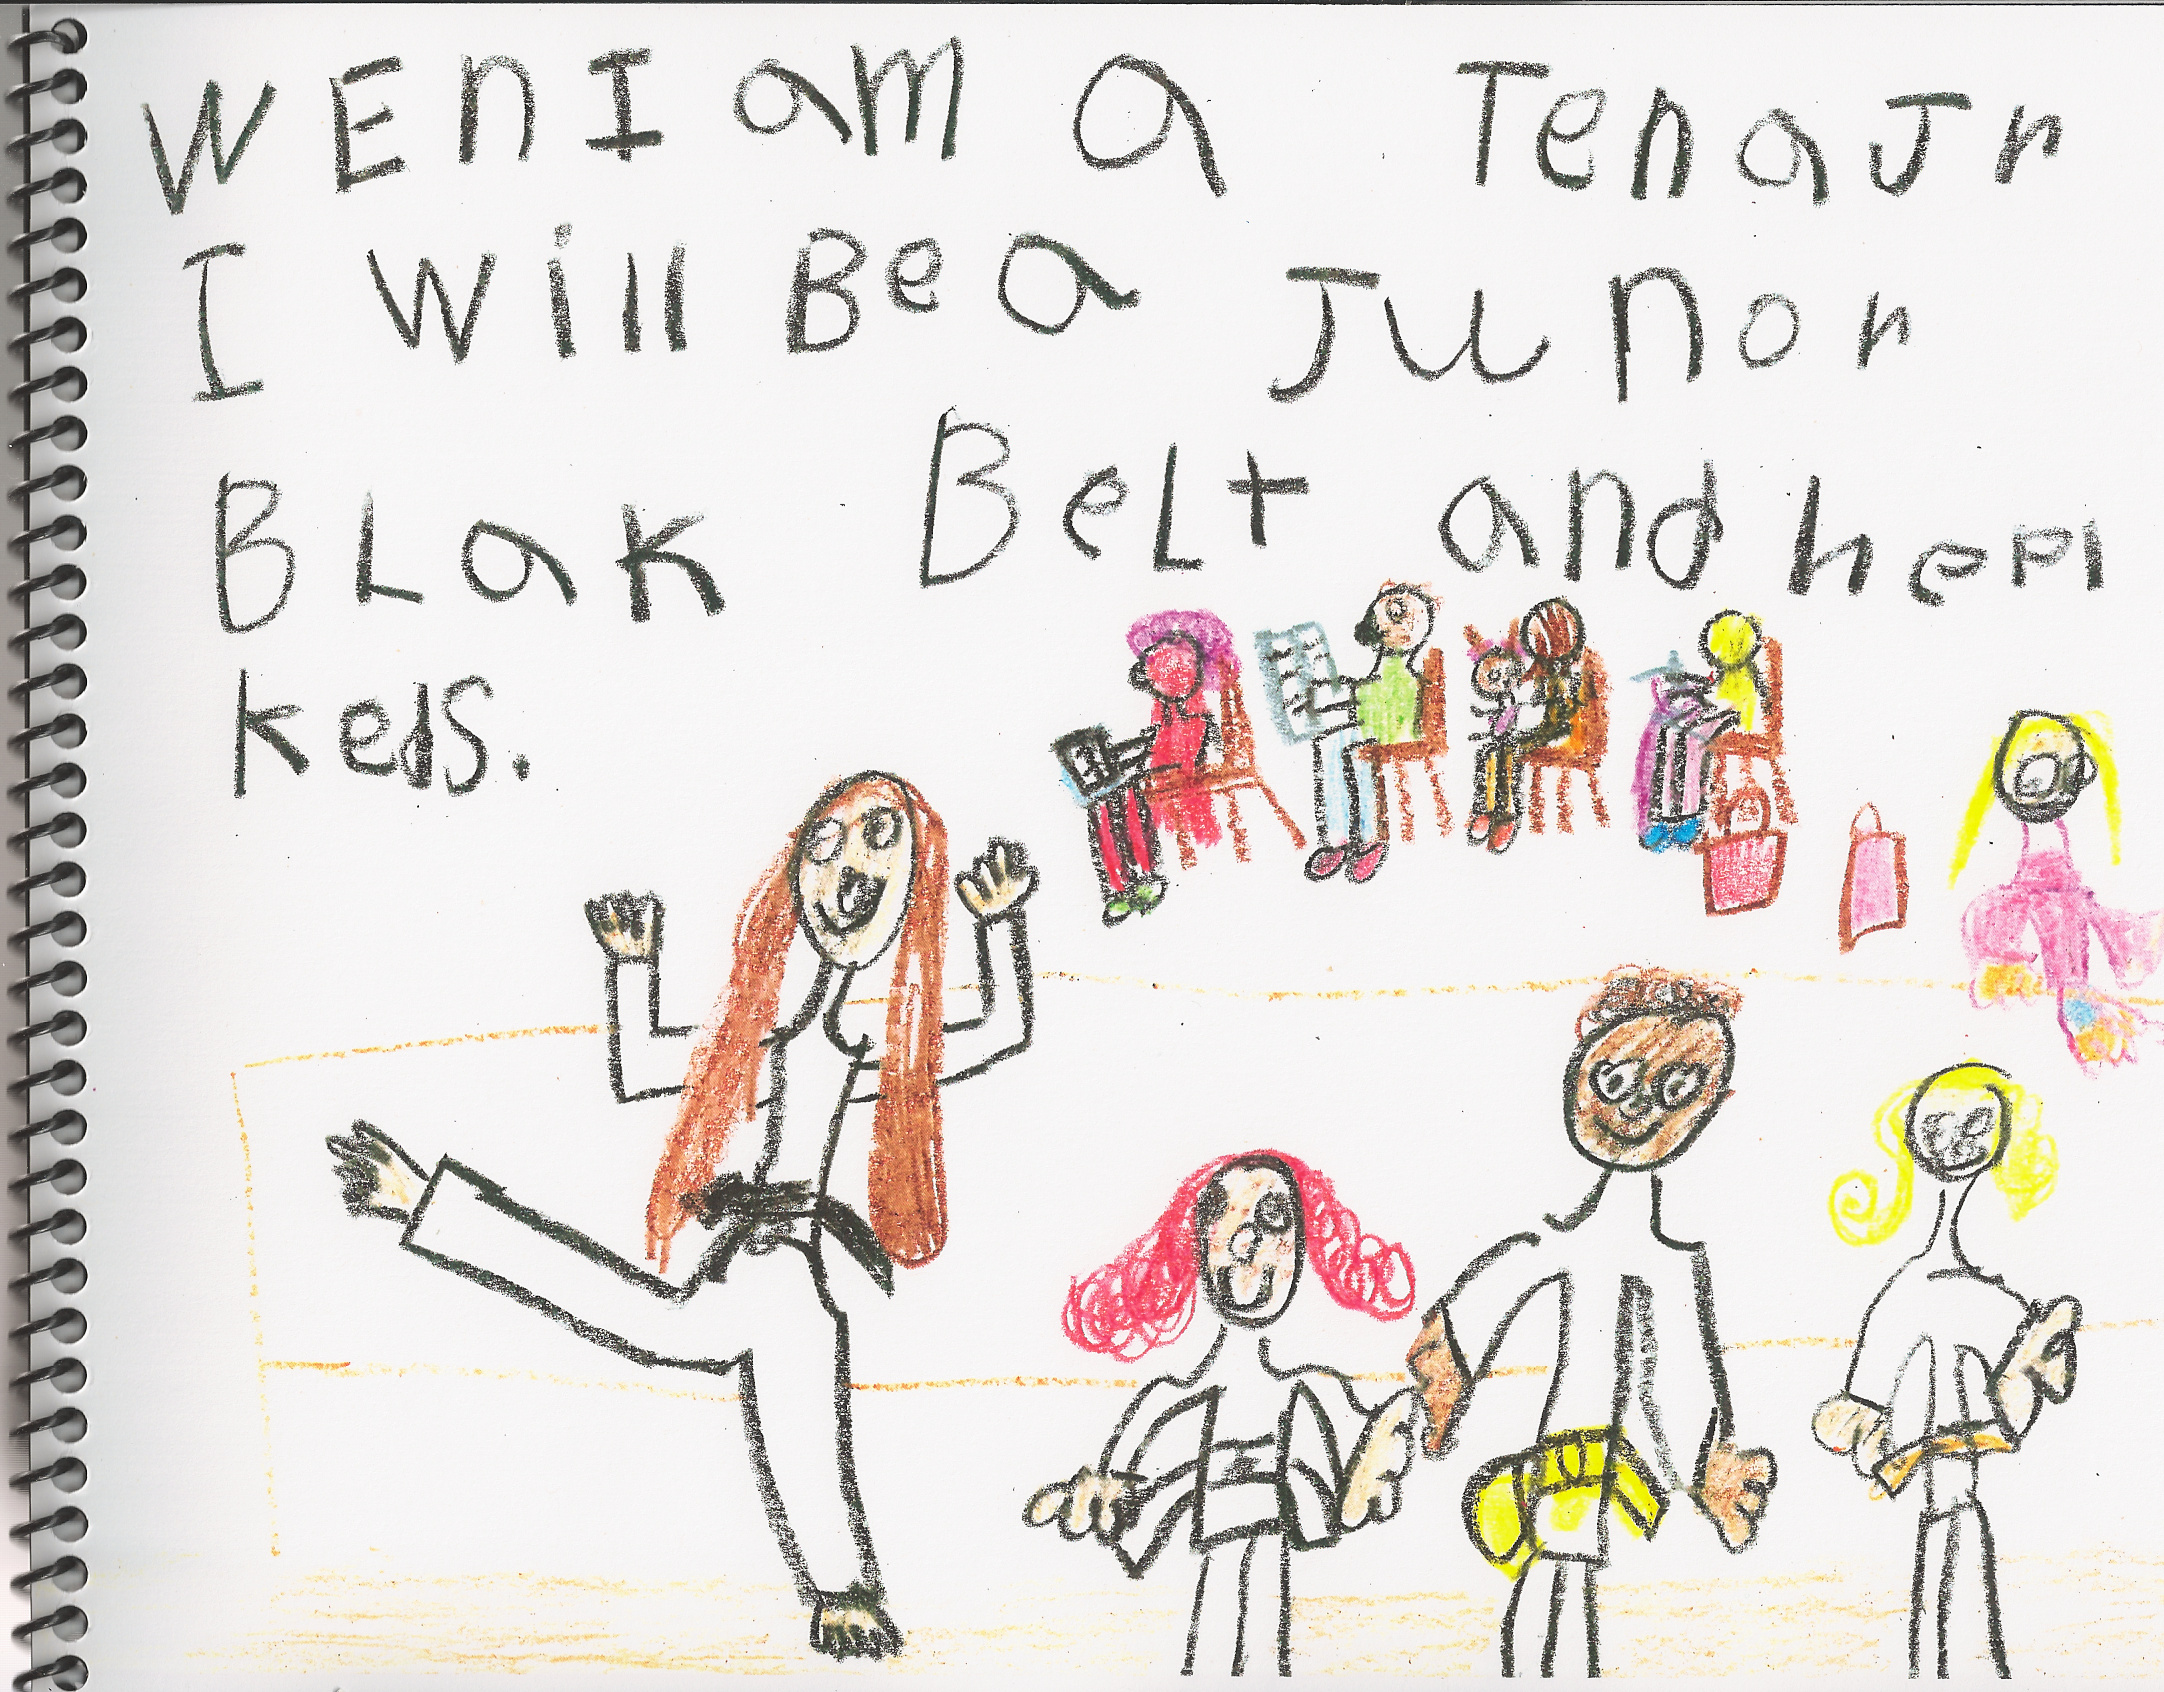 WEn I am a TenaJr
I Will Be a Junor
BLak BeLt and hepl
keds.